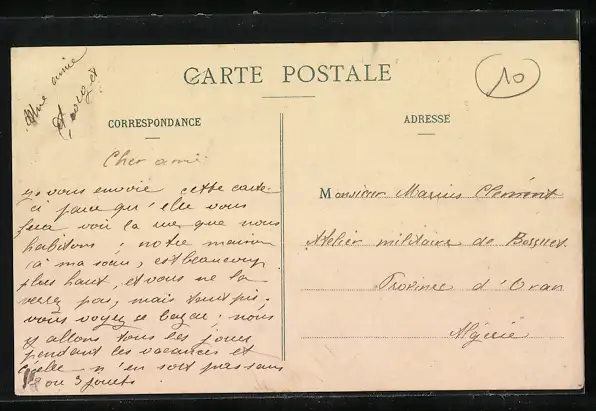 Une amie
CARTE POSTALE
10
CORRESPONDANCE
ADRESSE
Cher ami
je vous envoie cette carte-
ci parce qu'elle vous
fera voir la rue que nous
habitons; notre maison
(à ma sœur, est beaucoup
plus haut, et vous ne la
verrez pas, mais tant pis,
vous voyez ce bazar: nous
y allons tous les jours
pendant les vacances et
n'en sort pas sans
2 ou 3 jouets
Monsieur Marius Clément
Atelier militaire de Bossuet
Province d'Oran
Algérie